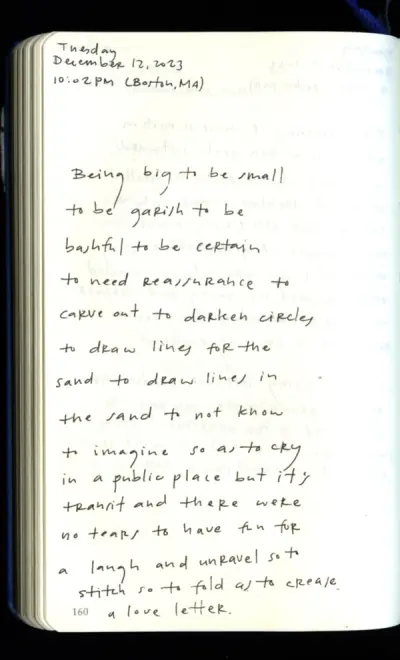 Tuesday
December 12, 2023
10:02 PM (Boston, MA)
Being big to be small
to be garish to be
bashful to be certain
to need reassurance to
carve out to darken circles
to draw lines for the
sand to draw lines in
the sand to not know
to imagine so as to cry
in a public place but it's
transit and there were
no tears to have fun for
a laugh and unravel so to
stitch so to fold as to crease
160 a love letter.